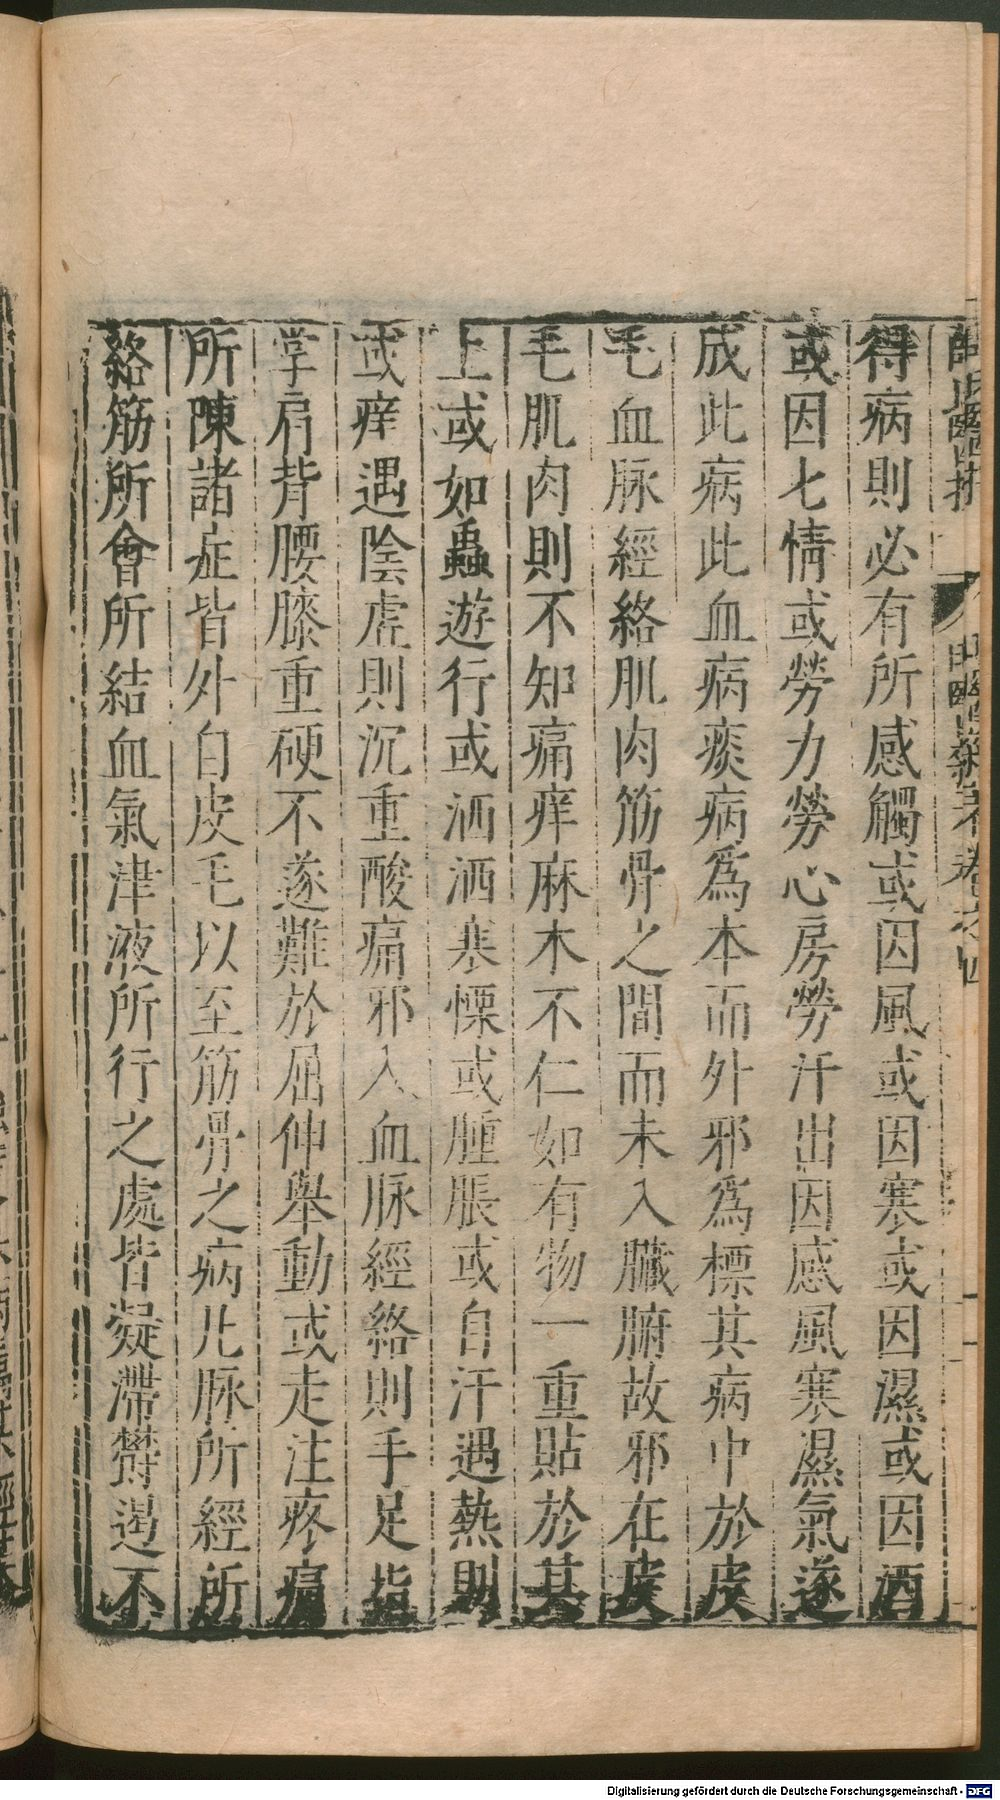 得病則必有所感觸或因風或因寒或因濕或因酒
或因七情或勞力勞心房勞汗出因感風寒濕氣遂
成此病此血病痰病爲本而外邪爲標其病中於皮
毛血脉經絡肌肉筋骨之間而未入臟腑故邪在皮
毛肌肉則不知痛痒麻木不仁如有物一重貼於其
上或如蟲遊行或洒洒寒慄或腫脹或自汗遇熱則
或痒遇陰虛則沉重酸痛邪入血脉經絡則手足指
掌肩背腰膝重硬不遂難於屈伸舉動或走注疼痛
所陳諸症皆外自皮毛以至筋骨之病凡脉所經所
絡筋所會所結血氣津液所行之處皆凝滯鬱遏不
Digitalisierung gefördert durch die Deutsche Forschungsgemeinschaft - DFG